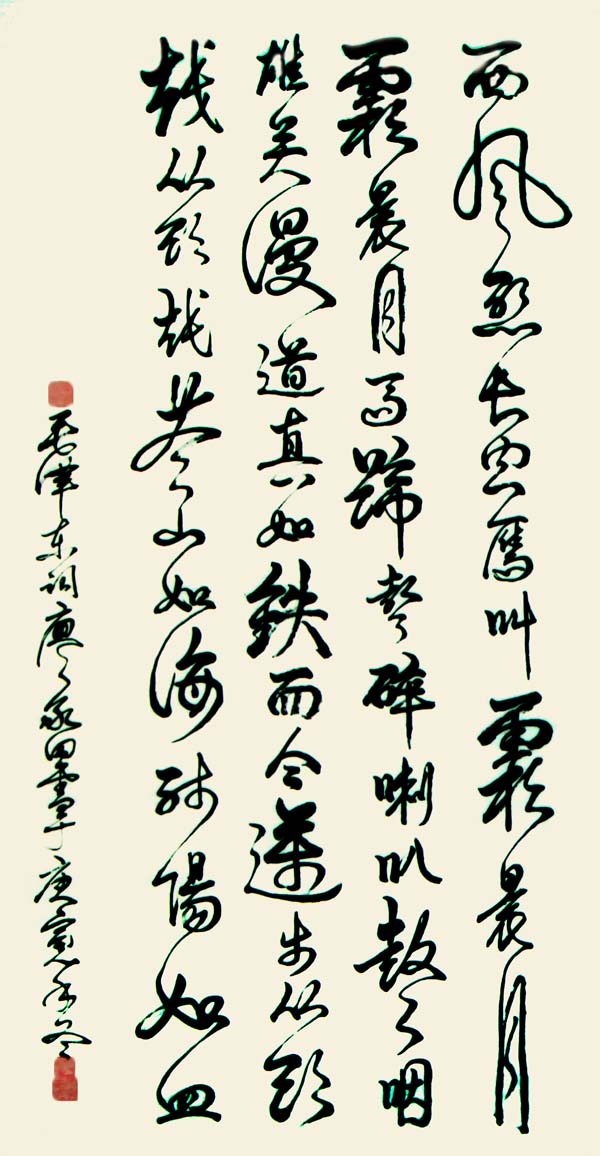 西风烈长空雁叫霜晨月
霜晨月马蹄声碎喇叭声咽
雄关漫道真如鐵而今迈步从頭
越从頭越苍山如海残陽如血
毛泽东词 书于庚寅年冬